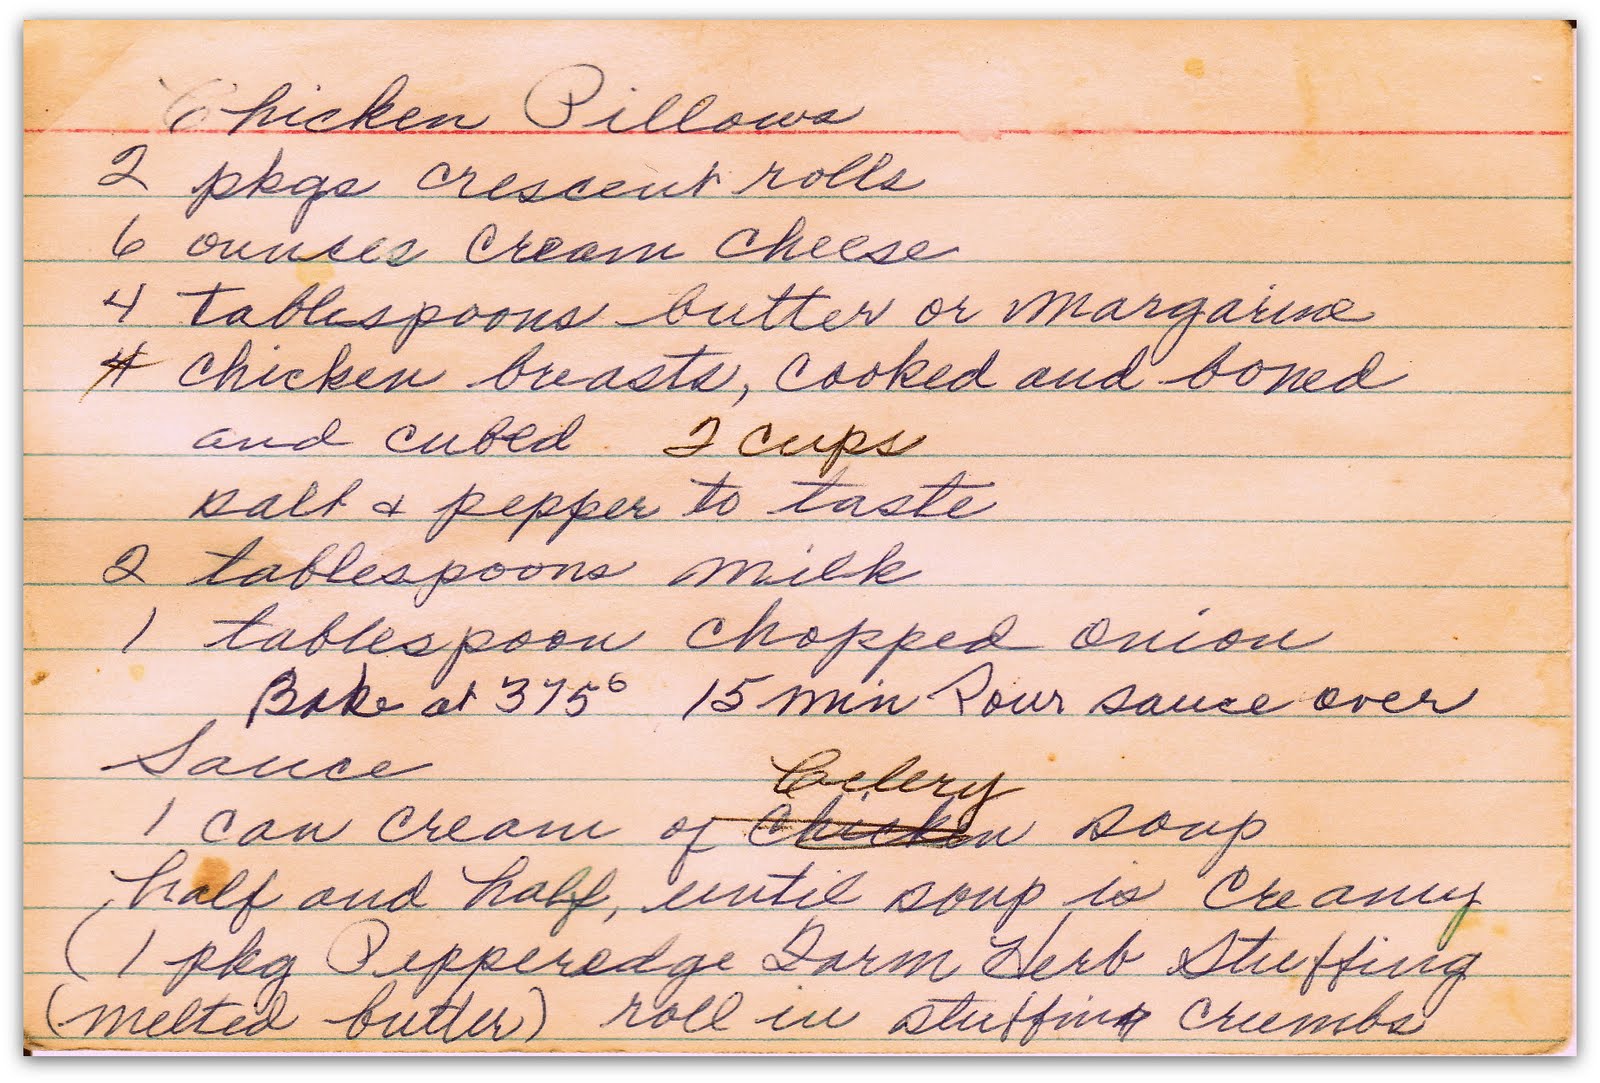 Chicken Pillows
2 pkgs crescent rolls
6 ounces cream cheese
4 tablespoons butter or margarine
4 chicken breasts, cooked and boned
and cubed 2 cups
salt & pepper to taste
2 tablespoons milk
1 tablespoon chopped onion
Bake at 375° 15 min Pour sauce over
Sauce
Celery
1 can cream of chicken soup
half and half, until soup is creamy
(1 pkg Pepperedge Farm Herb Stuffing
(melted butter) roll in stuffing crumbs